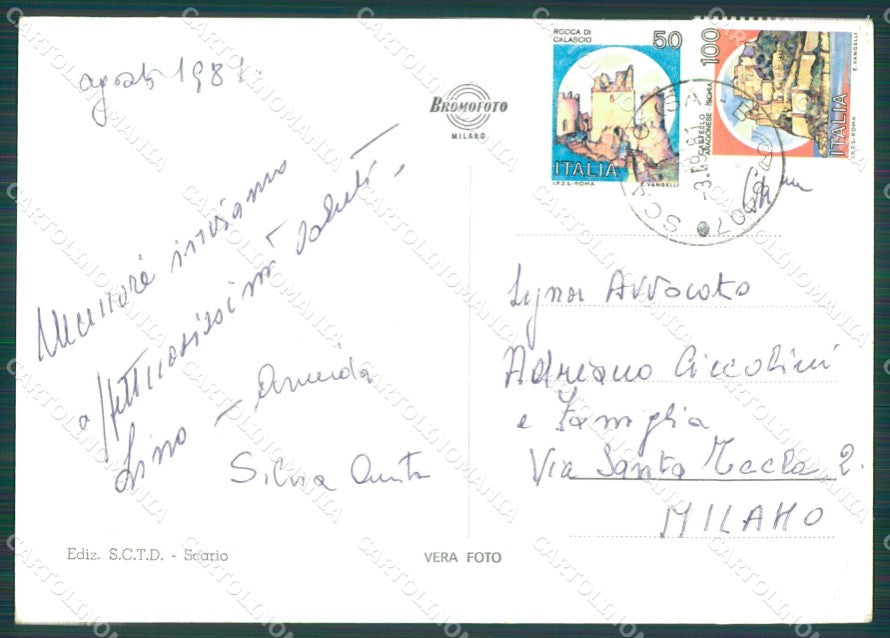 agosto 1981
BROMOFOTO
MILANO
ROCCA DI
CALASCIO
50
ITALIA
I.P.Z.S.-ROMA
E. VANGELLI
100
CASTELLO
ARAGONESE ISCHIA
ITALIA
I.P.Z.S.-ROMA
E. VANGELLI
inviamo
affettuosissimi saluti
Lino - Armida
Silvia Anita
Signor Avvocato
Adriano Ciccolini
e Famiglia
Via Santa Tecla 2.
MILANO
Ediz. S.C.T.D. - Scario
VERA FOTO
CARTOLINOMANIA